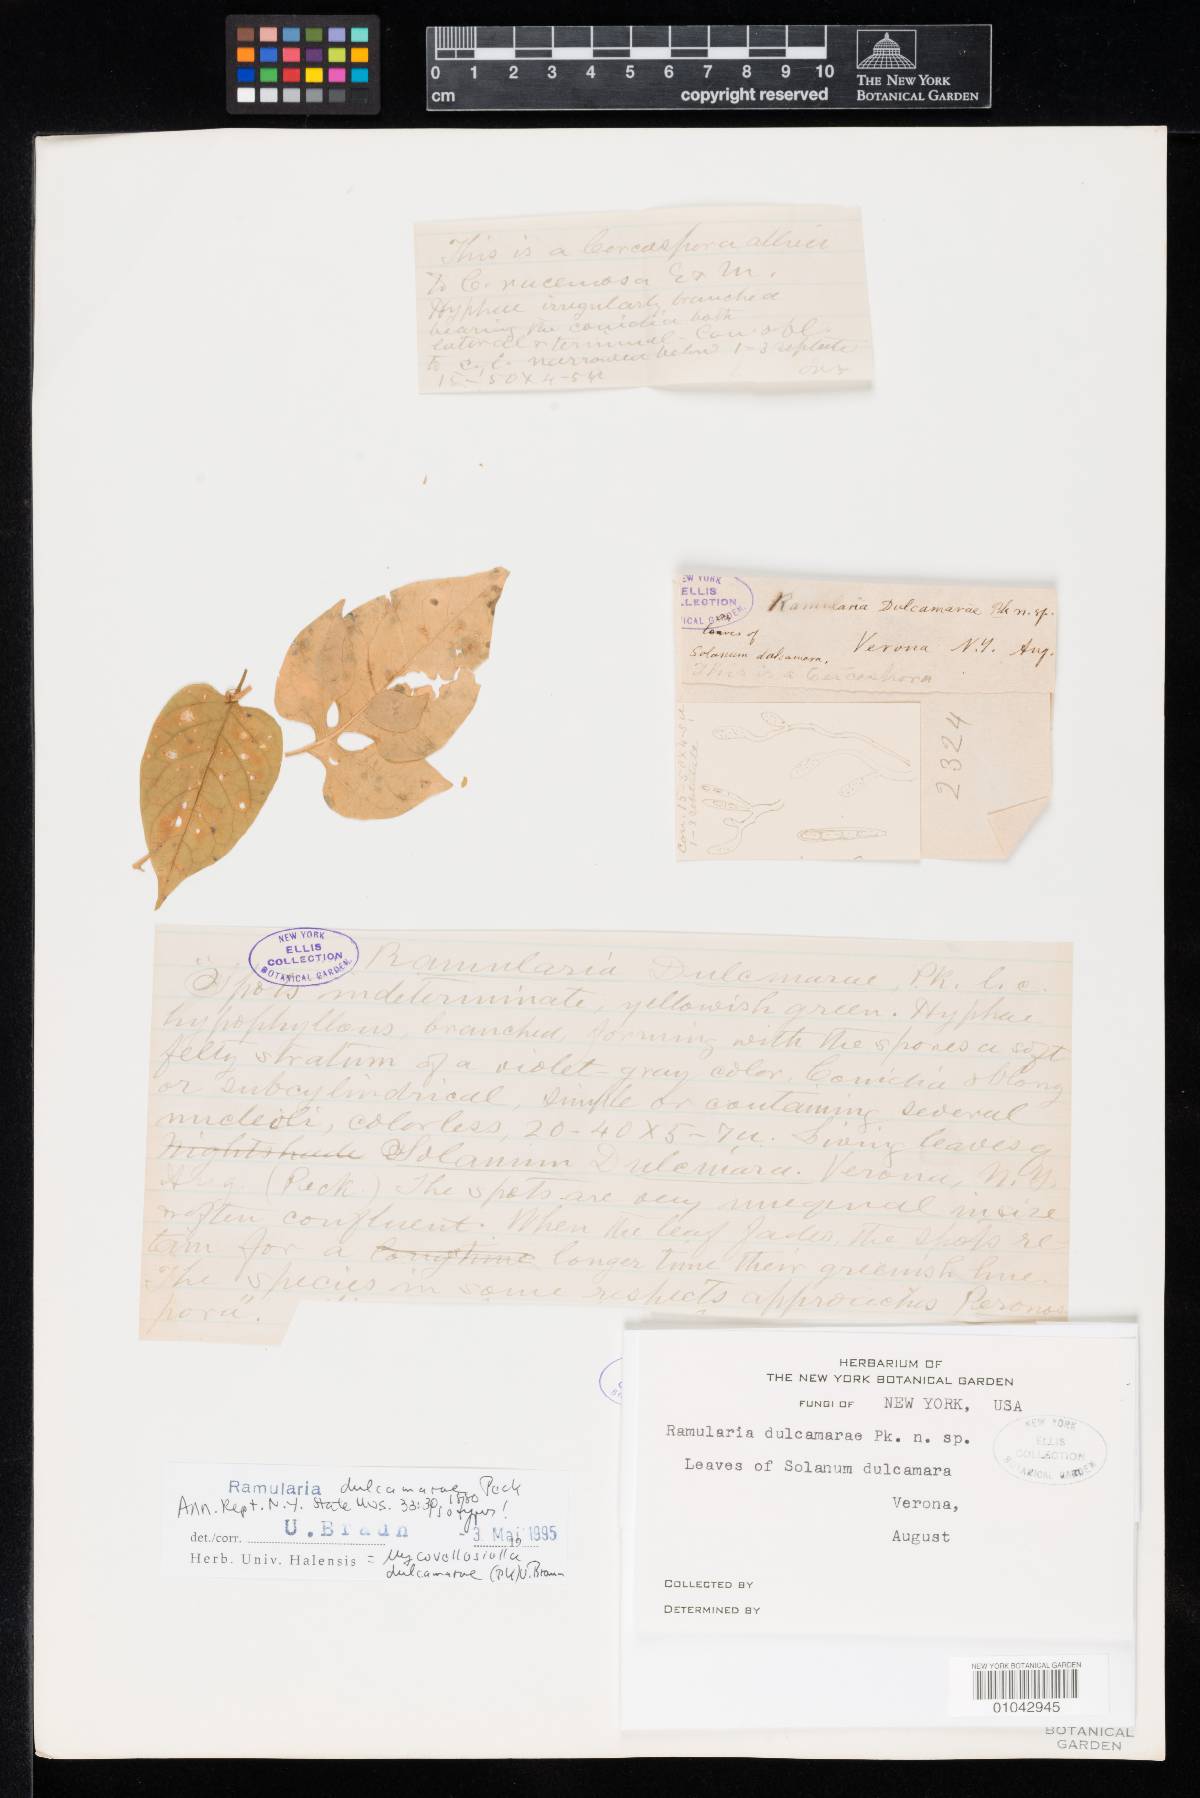 0 1 2 3 4 5 6 7 8 9 10
cm
copyright reserved
THE NEW YORK
BOTANICAL GARDEN
This is a Cercospora allied
to C. racemosa E & M.
Hyphae irregularly branched
bearing the conidia both
lateral & terminal. Con. obl.
to narrowed below 1-3 septate
15-50 X 4-5 µ
NEW YORK
ELLIS
COLLECTION
BOTANICAL GARDEN.
Ramularia Dulcamarae Pk n. sp.
leaves of
Solanum dulcamara.
Verona N.Y. Aug.
This is a Cercospora
Con. 15-50 X 4-5 µ
1-3 septate
2324
NEW YORK
ELLIS
COLLECTION
BOTANICAL GARDEN.
Ramularia Dulcamarae, Pk. l. c.
"Spots indeterminate, yellowish green. Hyphae
hypophyllous, branched, forming with the spores a soft
felty stratum of a violet-gray color. Conidia oblong
or subcylindrical, simple or containing several
nucleoli, colorless, 20-40 X 5-7 µ. Living leaves of
Nightshade Solanum Dulcamara. Verona, N.Y.
Aug. (Peck.) The spots are very unequal in size
& often confluent. When the leaf fades, the spots re-
tain for a long time longer time their greenish hue.
The species in some respects approaches Peronos-
pora".
Ramularia dulcamarae Peck
Ann. Rept. N.Y. State Mus. 33:30, 1880
isotypus!
det./corr. U. Braun - 3. Mai 1995
Herb. Univ. Halensis = Mycovellosiella
dulcamarae (Pk) U. Braun
HERBARIUM OF
THE NEW YORK BOTANICAL GARDEN
FUNGI OF NEW YORK, USA
Ramularia dulcamarae Pk. n. sp.
Leaves of Solanum dulcamara
Verona,
August
COLLECTED BY
DETERMINED BY
NEW YORK
ELLIS
COLLECTION
NEW YORK BOTANICAL GARDEN
01042945
BOTANICAL
GARDEN